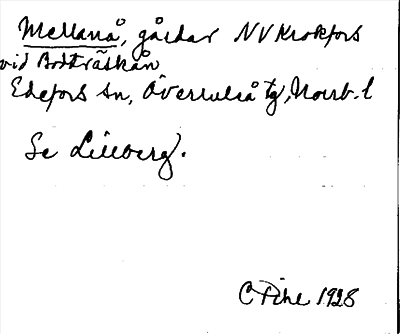 Mellanå, gårdar NV Krokfors
vid Bodträskån
Edefors sn, Överluleå tg, Norrb. l
Se Lilleberg.
C Fihl 1928